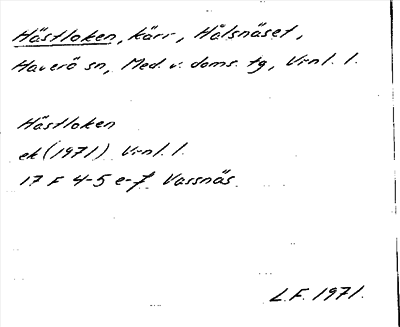 Hästloken, kärr, Hålsnäset,
Haverö sn, Med. v. doms. tg, V:nl. l.
Hästloken
ek (1971) V:nl. l.
17 F 4-5 e-f Vassnäs
L.F. 1971.